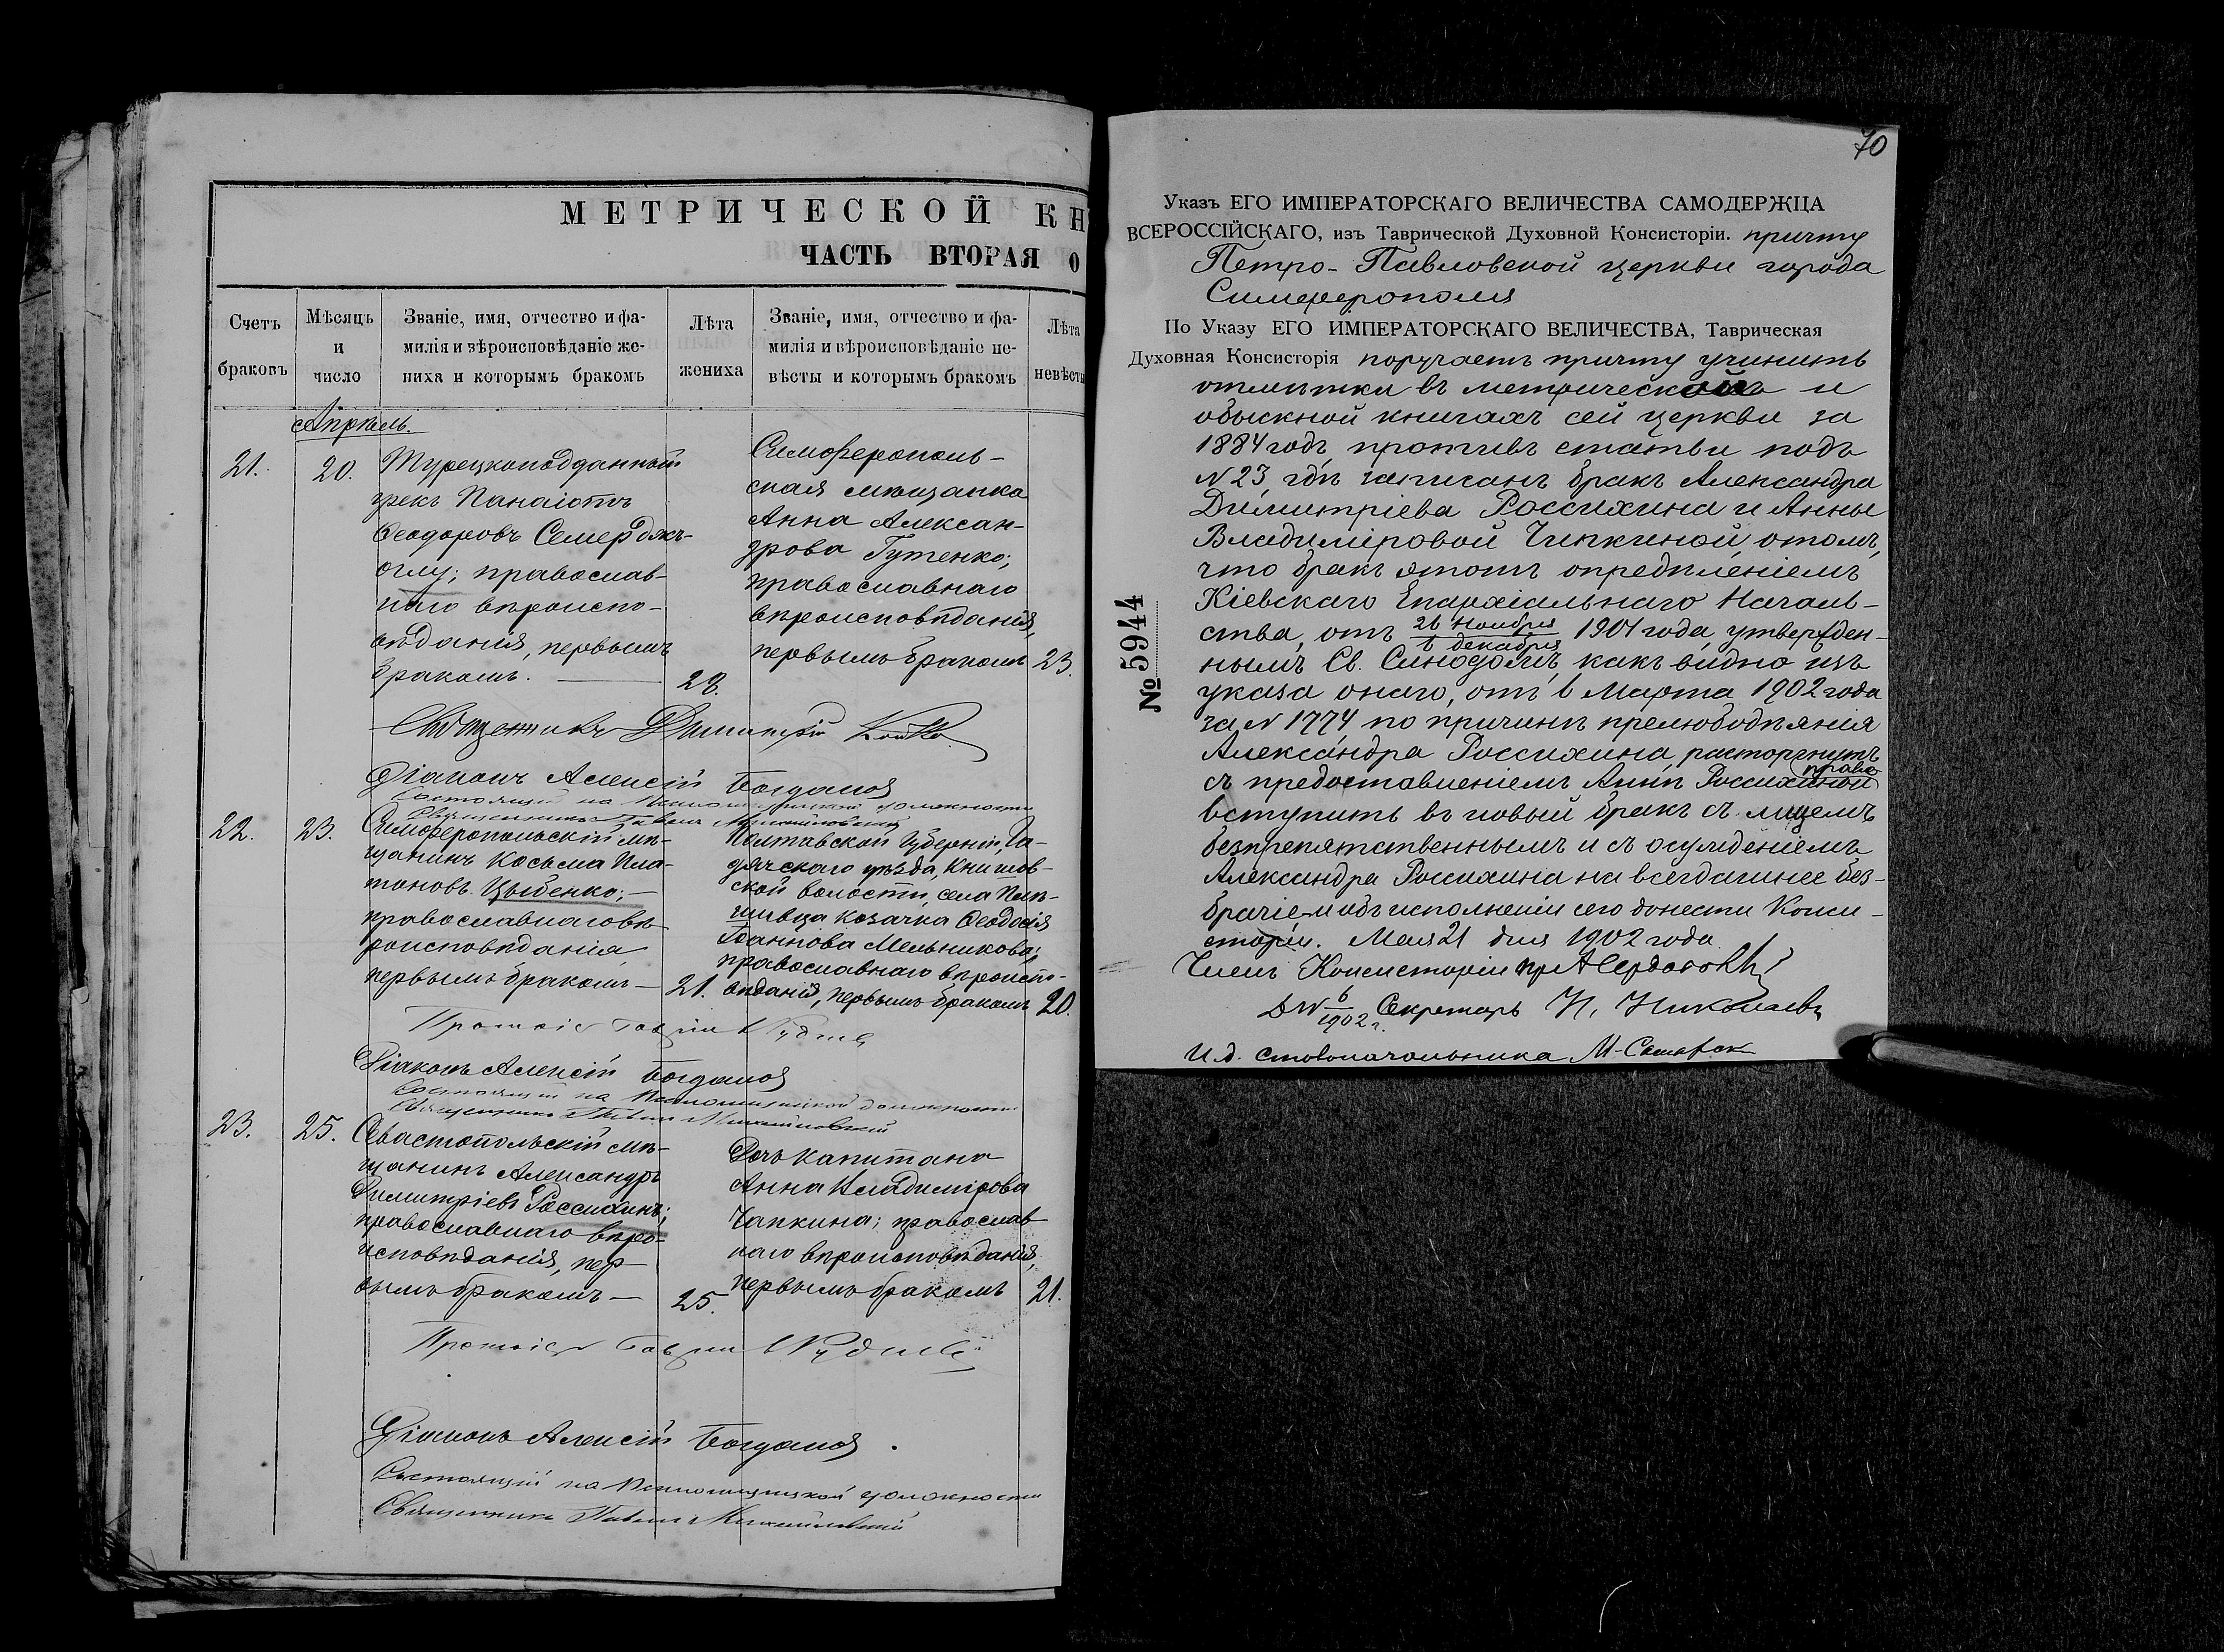 МЕТРИЧЕСКОЙ КН
ЧАСТЬ ВТОРАЯ О
Счетъ браковъ
Мѣсяцъ и число
Званіе, имя, отчество и фа-
милія и вѣроисповѣданіе же-
ниха и которымъ бракомъ
Лѣта жениха
Званіе, имя, отчество и фа-
милія и вѣроисповѣданіе не-
вѣсты и которымъ бракомъ
Лѣта невѣсты
Апрѣль.
21.
20.
Турецкоподданный
грекъ Панаіотъ
Ѳеодоровъ Семерджъ-
оглу; православ-
наго вѣроиспо-
вѣданія, первымъ
бракомъ.
28.
Симферополь-
ская мѣщанка
Анна Алексан-
дрова Гутенко;
православнаго
вѣроисповѣданія,
первымъ бракомъ
23.
Священникъ Димитрій
Діаконъ Алексій Богданов
Состоящій на Псаломщицкой должности
Священникъ Павелъ Михайловскій
22.
23.
Симферопольскій мѣ-
щанинъ Косьма Пла-
тоновъ Цыбенко;
православнаго вѣ-
роисповѣданія
первымъ бракомъ
21.
Полтавской Губерніи, Га-
дячскаго уѣзда, Книшов-
ской волости, села
козачка Ѳеодосія
Іоаннова Мельникова;
православнаго вѣроиспо-
вѣданія, первымъ бракомъ
20.
Діаконъ Алексій Богданов
Состоящій на Псаломщицкой должности
Священникъ Павелъ Михайловскій
23.
25.
Севастопольскій мѣ-
щанинъ Александръ
Димитріевъ Россихинъ;
православнаго вѣро-
исповѣданія, пер-
вымъ бракомъ
25.
Дочь капитана
Анна Владимірова
Чапкина; православ-
наго вѣроисповѣданія,
первымъ бракомъ
21.
Діаконъ Алексій Богданов
Состоящій на Псаломщицкой должности
Священникъ Павелъ Михайловскій
70
Указъ ЕГО ИМПЕРАТОРСКАГО ВЕЛИЧЕСТВА САМОДЕРЖЦА
ВСЕРОССІЙСКАГО, изъ Таврической Духовной Консисторіи. причту
Петро-Павловской церкви города
Симферополя
По Указу ЕГО ИМПЕРАТОРСКАГО ВЕЛИЧЕСТВА, Таврическая
Духовная Консисторія поручаетъ причту учинить
отмѣтки въ метрической и
обыскной книгахъ сей церкви за
1884 годъ, противъ статьи подъ
N 23, гдѣ записанъ бракъ Александра
Димитріева Россихина и Анны
Владиміровой Чапкиной, о томъ,
что бракъ этотъ опредѣленіемъ
Кіевскаго Епархіальнаго Началь-
ства, отъ 26 Ноября / 6 декабря 1901 года, утвержден-
нымъ Св. Синодомъ, какъ видно изъ
указа онаго, отъ 6 Марта 1902 года
за N 1774 по причинѣ прелюбодѣянія
Александра Россихина, расторгнутъ
съ предоставленіемъ Аннѣ Россихиной права
вступить въ новый бракъ съ лицемъ
безпрепятственнымъ и съ осужденіемъ
Александра Россихина на всегдашнее без-
брачіе и объ исполненіи сего донести Конси-
сторіи. Мая 21 дня 1902 года
Членъ Консисторіи
1902 г. Секретарь Н. Николаевъ
И.д. столоначальника
№ 5944